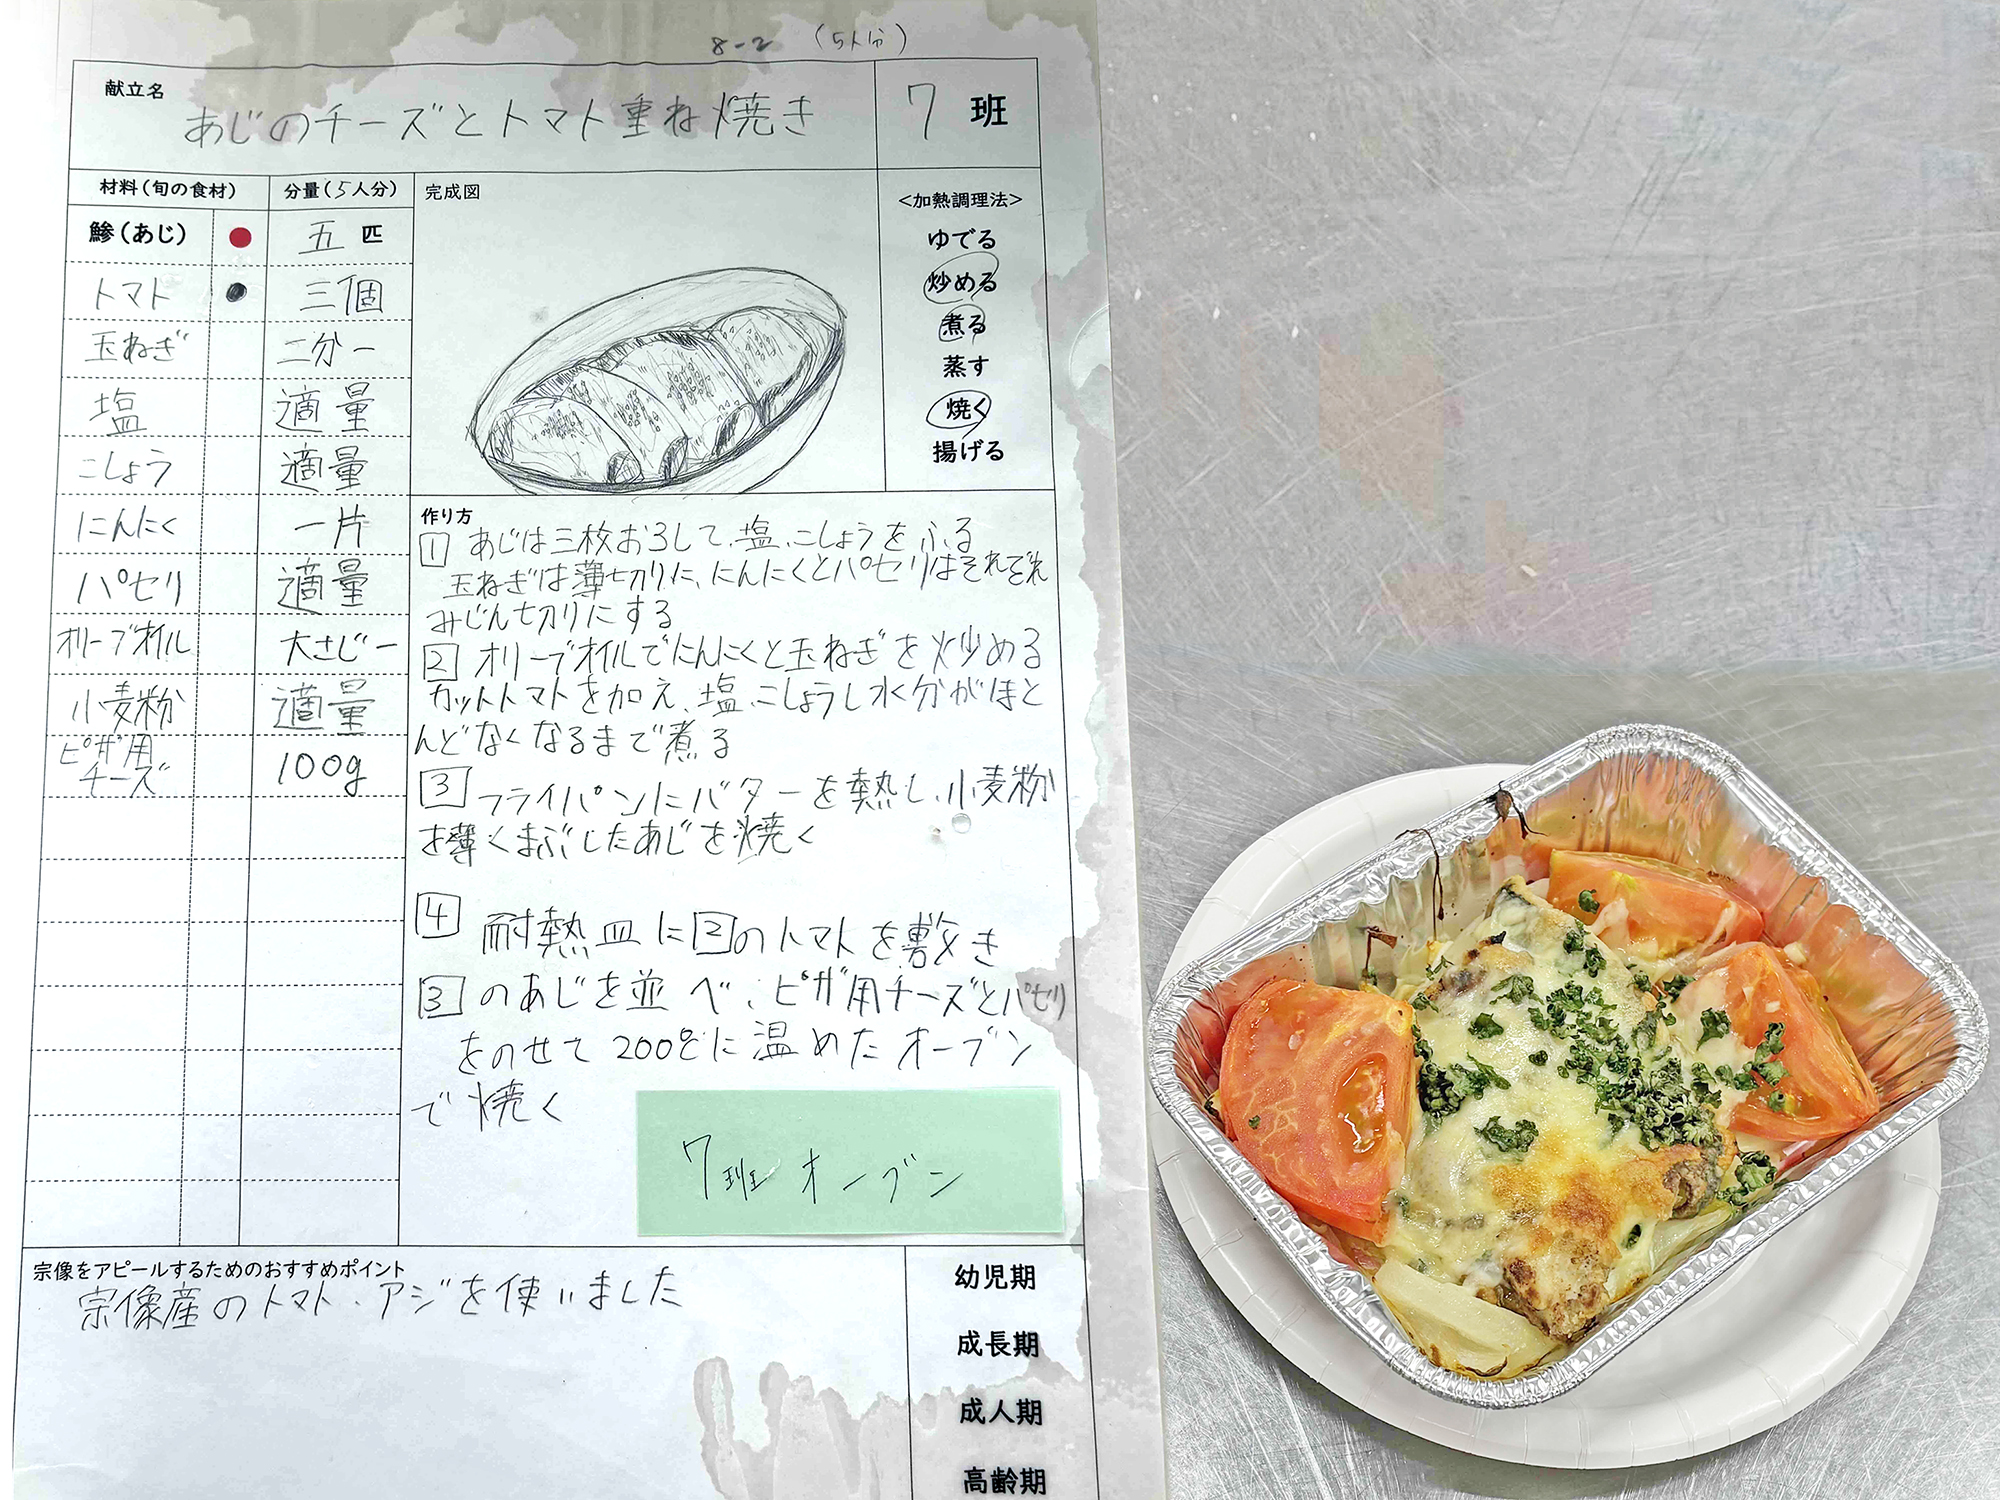 8-2 (5人分)
献立名
あじのチーズとトマト重ね焼き
7 班
材料(旬の食材)
分量(5人分)
鯵(あじ) ● 五 匹
トマト ● 三個
玉ねぎ 二分一
塩 適量
こしょう 適量
にんにく 一片
パセリ 適量
オリーブオイル 大さじ一
小麦粉 適量
ピザ用
チーズ 100g
完成図
<加熱調理法>
ゆでる
炒める
煮る
蒸す
焼く
揚げる
作り方
1 あじは三枚おろして、塩、こしょうをふる
玉ねぎは薄切りに、にんにくとパセリはそれぞれ
みじん切りにする
2 オリーブオイルでにんにくと玉ねぎを炒める
カットトマトを加え、塩、こしょうし水分がほと
んどなくなるまで煮る
3 フライパンにバターを熱し、小麦粉
を薄くまぶしたあじを焼く
4 耐熱皿に2のトマトを敷き
3のあじを並べ、ピザ用チーズとパセリ
をのせて200℃に温めたオーブン
で焼く
7班 オーブン
宗像をアピールするためのおすすめポイント
宗像産のトマト、アジを使いました
幼児期
成長期
成人期
高齢期